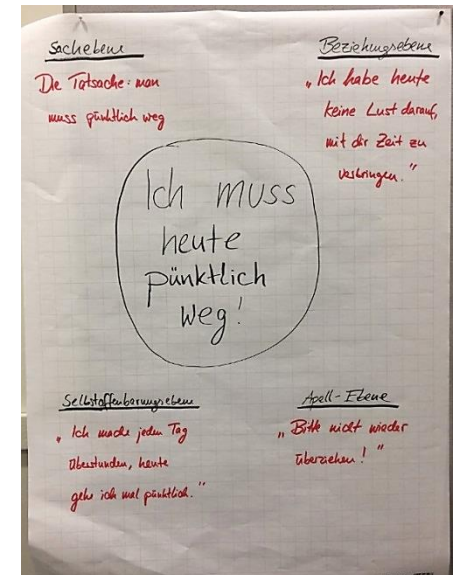 Sachebene
Die Tatsache: man
muss pünktlich weg
Beziehungsebene
„Ich habe heute
keine Lust darauf,
mit dir Zeit zu
verbringen."
Ich muss
heute
pünktlich
weg!
Selbstoffenbarungsebene
„Ich mache jeden Tag
Überstunden, heute
gehe ich mal pünktlich."
Apell-Ebene
„Bitte nicht wieder
überziehen!"